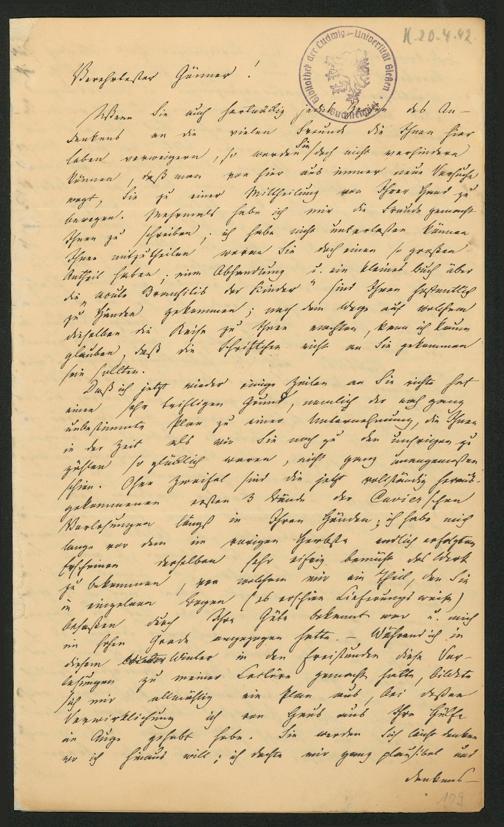 K. 20. 4. 42.
Bibliothek der Ludwigs-Universität Gießen
Verehrtester Gönner!
Wenn Sie auch hartnäckig jedes des An-
denkens an die vielen Freunde die Ihnen hier
leben verweigern, so werden Sie doch nicht verhindern
können, daß man von hier aus immer neue Versuche
wagt, Sie zu einer Mittheilung von Ihrer Hand zu
bewegen. Mehrmals habe ich mir die Freude gemacht
Ihnen zu schreiben; ich habe nicht unterlassen können
Ihnen mitzutheilen woran Sie doch einen so großen
Antheil haben; eine Abhandlung u. ein kleines Buch über
die "acute Bronchitis der Kinder" sind Ihnen hoffentlich
zu Händen gekommen; nach dem Wege auf welchem
dieselben die Reise zu Ihnen machten, kann ich kaum
glauben, daß die Schriftchen nicht an Sie gekommen
sein sollten.
Daß ich jetzt wieder einige Zeilen an Sie richte hat
einen sehr triftigen Grund, nemlich der noch ganz
unbestimmte Plan zu einer Unternehmung, die Ihnen
in der Zeit als wir Sie noch zu den unsrigen zu
zählen so glücklich waren, nicht ganz unangemessen
schien. Ohne Zweifel sind die jetzt vollständig heraus-
gekommenen ersten 3 Bände der Cuvierschen
Vorlesungen längst in Ihren Händen; ich habe mich
lange vor dem im vorigen Herbste endlich erfolgten
Erscheinen derselben sehr eifrig bemüht das Werk
zu bekommen, von welchem mir ein Theil, den Sie
in einzelnen Bogen (es erschien lieferungsweise)
besaßen durch Ihre Güte bekannt war u. mich
im hohen Grade angezogen hatte. — Während ich in
diesem Winter in den Freistunden diese Vor-
lesungen zu meiner Lectüre gemacht hatte, bildete
sich mir allmählig ein Plan aus, bei dessen
Verwirklichung ich von Haus aus Ihre Hülfe
im Auge gehabt habe. Sie werden Sich leicht denken
wo ich hinaus will; ich dachte mir ganz plausibel und
denkens-
109